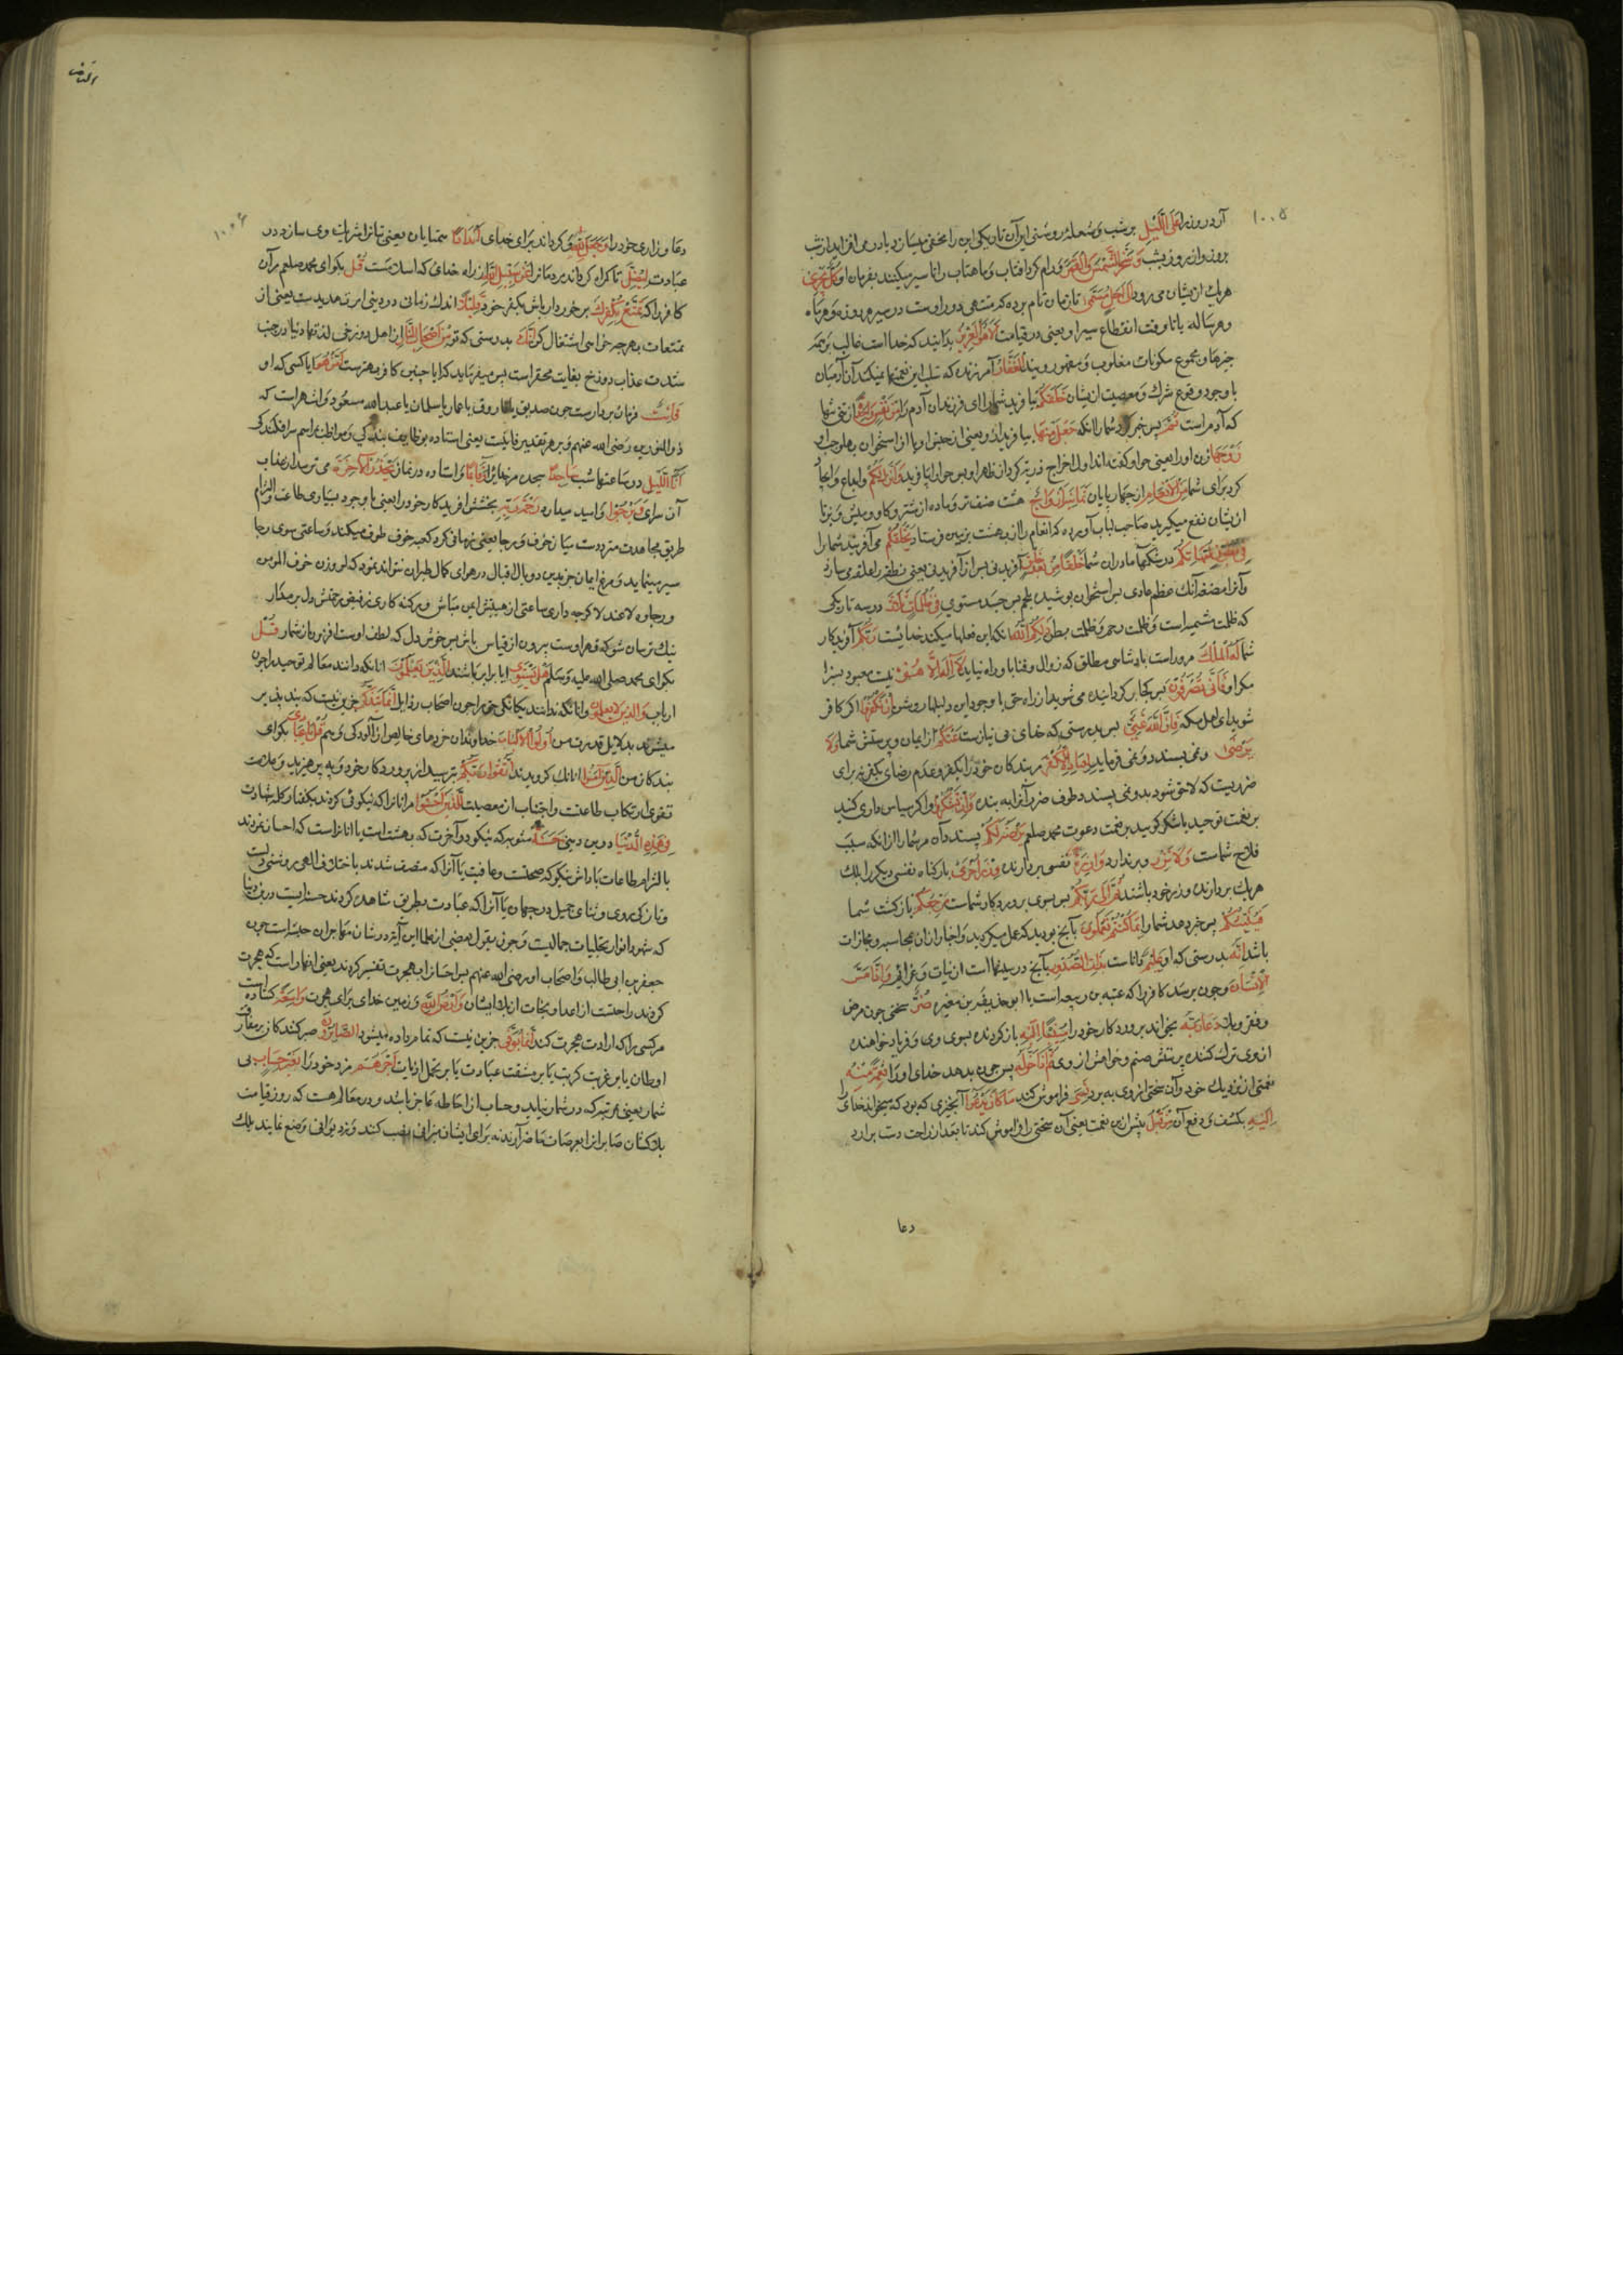 ۱۰۰۵
آرد روز را عَلَى اللَّيْلِ بر شب و شعله روشنی این آن تاریکی این را مخفی میسازد یا در می افزاید از شب
بروز و از روز بشب وَسَخَّرَ الشَّمْسَ وَالْقَمَرَ و رام کرد افتاب و ماهتاب را تا سیر میکنند بفرمان او كُلٌّ يَجْرِي
هر یک ازیشان می رود لِأَجَلٍ مُسَمًّى تا زمان نام برده که منتهی دور اوست در سیر هر روزه و هر ماه
و هر ساله یا تا وقت انقطاع سیر او یعنی در قیامت أَلَا هُوَ الْعَزِيزُ بدانید که خدا است غالب بر همه
چیزها و مجموع مکونات مغلوب و مقهور ویند الْغَفَّارُ آمرزنده که سلب این نعمتها نمیکند از آدمیان
با وجود وقوع شرک و معصیت ازیشان خَلَقَكُمْ بیافرید شما را ای فرزندان آدم مِنْ نَفْسٍ وَاحِدَةٍ از تنی تنها
که آدم است ثُمَّ پس خبر داد شما را انکه جَعَلَ مِنْهَا بیافرید از وی یعنی از جنس او یا از استخوان پهلو چپ او
زَوْجَهَا زن او را یعنی حوا و گفته اند اول اخراج ذریه کرد از ظهر او پس حوا را بیافرید وَأَنْزَلَ لَكُمْ و ابداع و ایجاد
کرد برای شما مِنَ الْأَنْعَامِ از چهار پایان ثَمَانِيَةَ أَزْوَاجٍ هشت صنف نر و ماده از شتر و کاو و میش و بز تا
ازیشان نفع میگیرید صاحب لباب آورده که انعام را از بهشت بزمین فرستاد يَخْلُقُكُمْ می آفریند شما را
فِي بُطُونِ أُمَّهَاتِكُمْ در شکمها مادران شما خَلْقًا مِنْ بَعْدِ خَلْقٍ آفریدنی پس از آفریدنی یعنی نطفه را علقه می سازد
و آنرا مضغه آنک عظم عاری پس استخوان پوشیده بلحم پس جسد مستوی فِي ظُلُمَاتٍ ثَلَاثٍ در سه تاریکی
که ظلمت مشیمه است و ظلمت رحم و ظلمت بطن ذَلِكُمُ اللَّهُ انکه این فعلها میکند خدایست رَبُّكُمْ آفریدکار
شما لَهُ الْمُلْكُ مر وراست پادشاهی مطلق که زوال و فنا باو راه نیابد لَا إِلَهَ إِلَّا هُوَ نیست معبود بسزا
مکر او فَأَنَّى تُصْرَفُونَ پس کجا بر کردانیده می شوید از راه حق با وجود این دلیلها روشن إِنْ تَكْفُرُوا اکر کافر
شوید ای اهل مکه فَإِنَّ اللَّهَ غَنِيٌّ پس بدرستی که خدای بی نیازست عَنْكُمْ از ایمان و پرستش شما وَلَا
يَرْضَى و نمی پسندد و نمی فرماید لِعِبَادِهِ الْكُفْرَ مر بندکان خود را بکفر و عدم رضای بکفر نه برای
ضرریست که لاحق شود بدو نمی پسندد طرف ضرر آنرا به بنده وَإِنْ تَشْكُرُوا و اکر سپاس داری کنید
بر نعمت توحید یا شکر کویید بر نعمت دعوت محمد صلعم يَرْضَهُ لَكُمْ پسندد آن مر شما را از انکه سبب
فلاح شماست وَلَا تَزِرُ و بر ندارد وَازِرَةٌ نفسی بردارنده وِزْرَ أُخْرَى بار کناه نفسی دیکر را بلک
هر یک بردارنده وزر خود باشند ثُمَّ إِلَى رَبِّكُمْ پس بسوی پروردکار شماست مَرْجِعُكُمْ بازکشت شما
فَيُنَبِّئُكُمْ پس خبر دهد شما را بِمَا كُنْتُمْ تَعْمَلُونَ بآنچ بودید که عمل میکردید و اخبار از آن محاسبه و مجازات
باشد إِنَّهُ بدرستی که او عَلِيمٌ داناست بِذَاتِ الصُّدُورِ بآنچ در سینها است از نیات و عزایم وَإِذَا مَسَّ
الْإِنْسَانَ و چون برسد کافر را که عتبه بن ربیعه است یا ابو حذیفه بن مغیره ضُرٌّ سختی چون مرض
و فقر و بلا دَعَا رَبَّهُ بخواند پروردکار خود را مُنِيبًا إِلَيْهِ باز کردنده بسوی وی و فریاد خواهنده
از وی ترک کننده پرستش صنم و خواهش از وی ثُمَّ إِذَا خَوَّلَهُ پس چون بدهد خدای او را نِعْمَةً مِنْهُ
نعمتی از نزدیک خود و آن سختی از وی به برد نَسِيَ فراموش کند مَا كَانَ يَدْعُوا آنچیزی که بود که میخواند خدای را
إِلَيْهِ بکشف و دفع آن مِنْ قَبْلُ پیش ازین نعمت یعنی آن سختی را فراموش کند تا بعد از راحت دست برارد
دعا
۱۰۰۶
دعا و زاری خود را وَجَعَلَ لِلَّهِ و کرداند برای خدای أَنْدَادًا همتایان یعنی بتانرا شریک وی سازد در
عبادت لِيُضِلَّ تا کمراه کرداند مردمانرا عَنْ سَبِيلِهِ از راه خدای که اسلامست قُلْ بکو ای محمد صلعم مر آن
کافر را که تَمَتَّعْ بِكُفْرِكَ برخوردار باش بکفر خود قَلِيلًا اندک زمانی در دنیی امر تهدیدست یعنی از
تمتعات بهر چه خواهی اشتغال کن إِنَّكَ بدرستی که تو مِنْ أَصْحَابِ النَّارِ از اهل دوزخی لذتها دنیا در جنب
شدت عذاب دوزخ بغایت محقر است پس میفرماید که ایا چنین کافر بهترست أَمَّنْ هُوَ یا کسی که او
قَانِتٌ فرمان بردارست چون صدیق یا فاروق یا عمار یا سلمان یا عبد الله مسعود و اشهر است که
ذو النورین رضی الله عنهم و بر هر تقدیر قانت یعنی استاده بوظایف بندکی و مواظب بمراسم سرافکندکی
آنَاءَ اللَّيْلِ در ساعتها شب سَاجِدًا سجده مر خدایرا وَقَائِمًا و استاده در نماز يَحْذَرُ الْآخِرَةَ می ترسد از عذاب
آن سرای وَيَرْجُوا و امید میدارد رَحْمَةَ رَبِّهِ بخشش افریدکار خود را یعنی با وجود بسیاری طاعت و التزام
طریق مجاهدت مترددست میان خوف و رجا یعنی زمانی کرد کعبه خوف طوف میکند و ساعتی سوی رجا
سیر مینماید و مرغ ایمان جز بدین دو بال اقبال در هوای کمال طیران نتواند نمود که لو وزن خوف المومن
و رجاوه لاعتدلا کرچه داری ساعتی از هیبتش ایمن مباش ور کنه کاری ز فیض رحمتش دل بر مدار
نیک ترسان شو که قهر اوست بیرون از قیاس باش بس خوش دل که لطف اوست افزون از شمار قُلْ
بکو ای محمد صلی الله علیه و سلم هَلْ يَسْتَوِي ایا برابر باشند الَّذِينَ يَعْلَمُونَ انانکه دانند معالم توحید را چون
ارباب وَالَّذِينَ لَا يَعْلَمُونَ و انانکه ندانند یکانکی حق را چون اصحاب رذایل إِنَّمَا يَتَذَكَّرُ جزین نیست که پند پذیر
میشوند بدلایل قدرت من أُولُوا الْأَلْبَابِ خداوندان خردهای خالص از آلودکی وهم قُلْ يَا عِبَادِ بکو ای
بندکان من الَّذِينَ آمَنُوا انانک کرویدند اتَّقُوا رَبَّكُمْ بترسید از پروردکار خود و بپرهیزید و علامت
تقوی ارتکاب طاعتست و اجتناب از معصیت لِلَّذِينَ أَحْسَنُوا مر انانرا که نیکوئی کردند بکفتار کلمه شهادت
فِي هَذِهِ الدُّنْيَا درین دنیی حَسَنَةٌ مثوبه که نیکو در آخرت که بهشت است یا انانراست که احسان نمودند
بالتزام طاعات پاداش نیکو که صحتست و عافیت یا آنرا که متصف شدند باخلاق الهی روشنی دلست
و تازکی روی و ثنای جمیل در جهان یا آنرا که عبادت بطریق مشاهده کردند حسنه ایست درین دنیا
که شهود انوار تجلیات جمالیست و چون بقول بعضی از علما این آیه در شان مهاجران حبشه است چون
جعفر بن ابی طالب و اصحاب او رضی الله عنهم پس احسان را بهجرت تفسیر کردند یعنی انها راست که هجرت
کردند راحتست از اعدا و نجات از بلا ایشان وَأَرْضُ اللَّهِ و زمین خدای برای هجرت وَاسِعَةٌ کشاده است
هر کسی را که ارادت هجرت کند إِنَّمَا يُوَفَّى جزین نیست که تمام داده میشود الصَّابِرُونَ صبر کنندکان بر مفارقت
اوطان یا بر غربت کربت یا بر مشقت عبادت یا بر تحمل اذیات أَجْرَهُمْ مزد خود را بِغَيْرِ حِسَابٍ بی
شمار یعنی بمرتبه که در شمار نیاید و حساب از احاطه عاجز باشد و در معالم هست که روز قیامت
بلاکشان صابر را بعرصات حاضر آرند نه برای ایشان میزانی نصب کنند و نه دیوانی وضع نمایند بلک